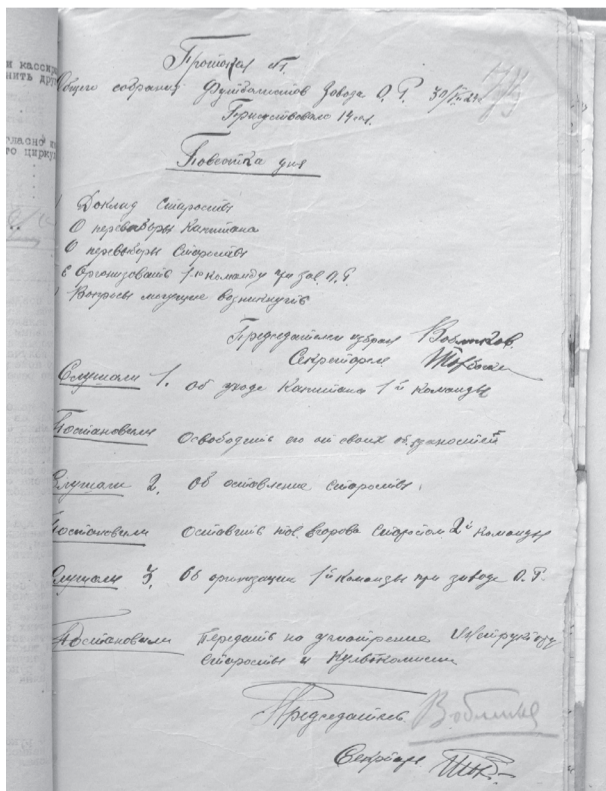 Протокол №1.
Общего собрания Футболистов Завода О.Г. 30/IV 24
Присутствовало 19 чел.
Повестка дня
Доклад Старосты
О перевыборы Капитана
О перевыборы Старосты
Организовать 1ю команду при зав. О.Г.
Вопросы могущие возникнуть
Председателем избран
Секретарем
Слушали 1. Об уходе Капитана 1й команды
Постановили Освободить его от своих обязаностей
Слушали 2. Об оставление старосты.
Постановили Оставить тов. Егорова Старостой 2й команды
Слушали 3. Об организации 1й команды при заводе О.Г.
Постановили Передать на усмотрение Инструктору
Старосты и Культкомиссии
Председатель
Секретарь
и кассир
нить дру
гласно
го цирку